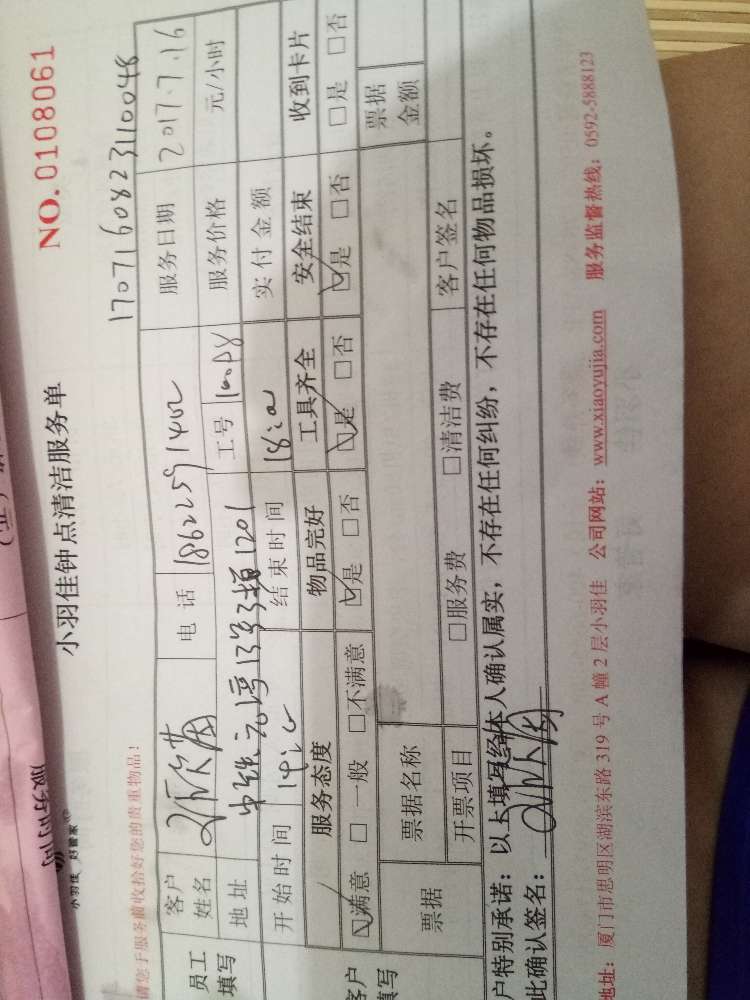 小羽佳钟点清洁服务单
NO.0108061
小羽佳 好管家
请您于服务前收拾好您的贵重物品！
1707160823110048
员工填写
客户姓名
电话 18622591402
服务日期 2017.7.16
地址 中铁元湾13号楼1201
工号
服务价格 元/小时
开始时间
结束时间
实付金额
服务态度 物品完好 工具齐全 安全结束 收到卡片
☑满意 □一般 □不满意 ☑是 □否 ☑是 □否 ☑是 □否 □是 □否
票据 票据名称 票据金额
开票项目 □服务费 □清洁费 客户签名
户特别承诺：以上填写经本人确认属实，不存在任何纠纷，不存在任何物品损坏。
此确认签名：
地址：厦门市思明区湖滨东路319号A幢2层小羽佳 公司网站：www.xiaoyujia.com 服务监督热线：0592-5888123